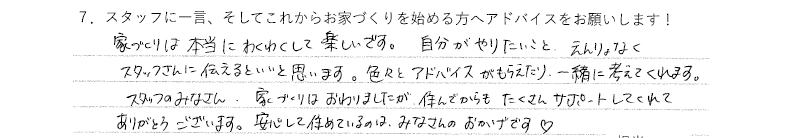 7. スタッフに一言、そしてこれからお家づくりを始める方へアドバイスをお願いします！
家づくりは本当にわくわくして楽しいです。自分がやりたいこと、えんりょなく
スタッフさんに伝えるといいと思います。色々とアドバイスがもらえたり、一緒に考えてくれます。
スタッフのみなさん、家づくりはおわりましたが、住んでからもたくさんサポートしてくれて
ありがとうございます。安心して住めているのは、みなさんのおかげです♡